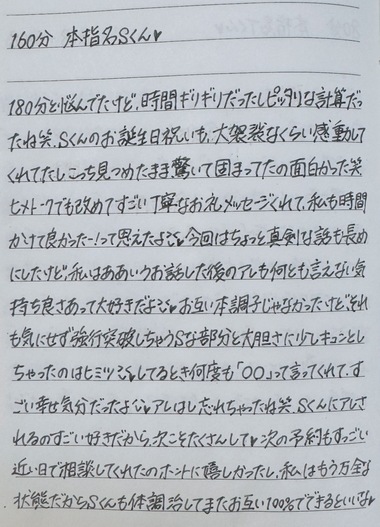 160分 本指名Sくん♥
180分と悩んでたけど、時間ギリギリだったしピッタリな計算だっ
たね笑、Sくんのお誕生日祝いも、大袈裟なくらい感動して
くれてたしこっち見つめたまま驚いて固まってたの面白かった笑
ヒメトークでも改めてすごい丁寧なお礼メッセージくれて、私も時間
かけて良かったー!って思えたよ♥今回はちょっと真剣な話も長め
にしたけど、私はああいうお話した後のアレも何とも言えない気
持ち良さあって大好きだよ♥お互い本調子じゃなかったけど、それ
も気にせず強行突破しちゃうSな部分と大胆さに少しキュンとし
ちゃったのはヒミツ♥してるとき何度も「〇〇」って言ってくれて、す
ごい幸せ気分だったよ♥アレはし忘れちゃったね笑、Sくんにアレさ
れるのすごい好きだから、次こそたくさんして♥次の予約もすっごい
近い日で相談してくれたのホントに嬉しかったし、私はもう万全な
状態だからSくんも体調治してまたお互い100%でできるといいな♥